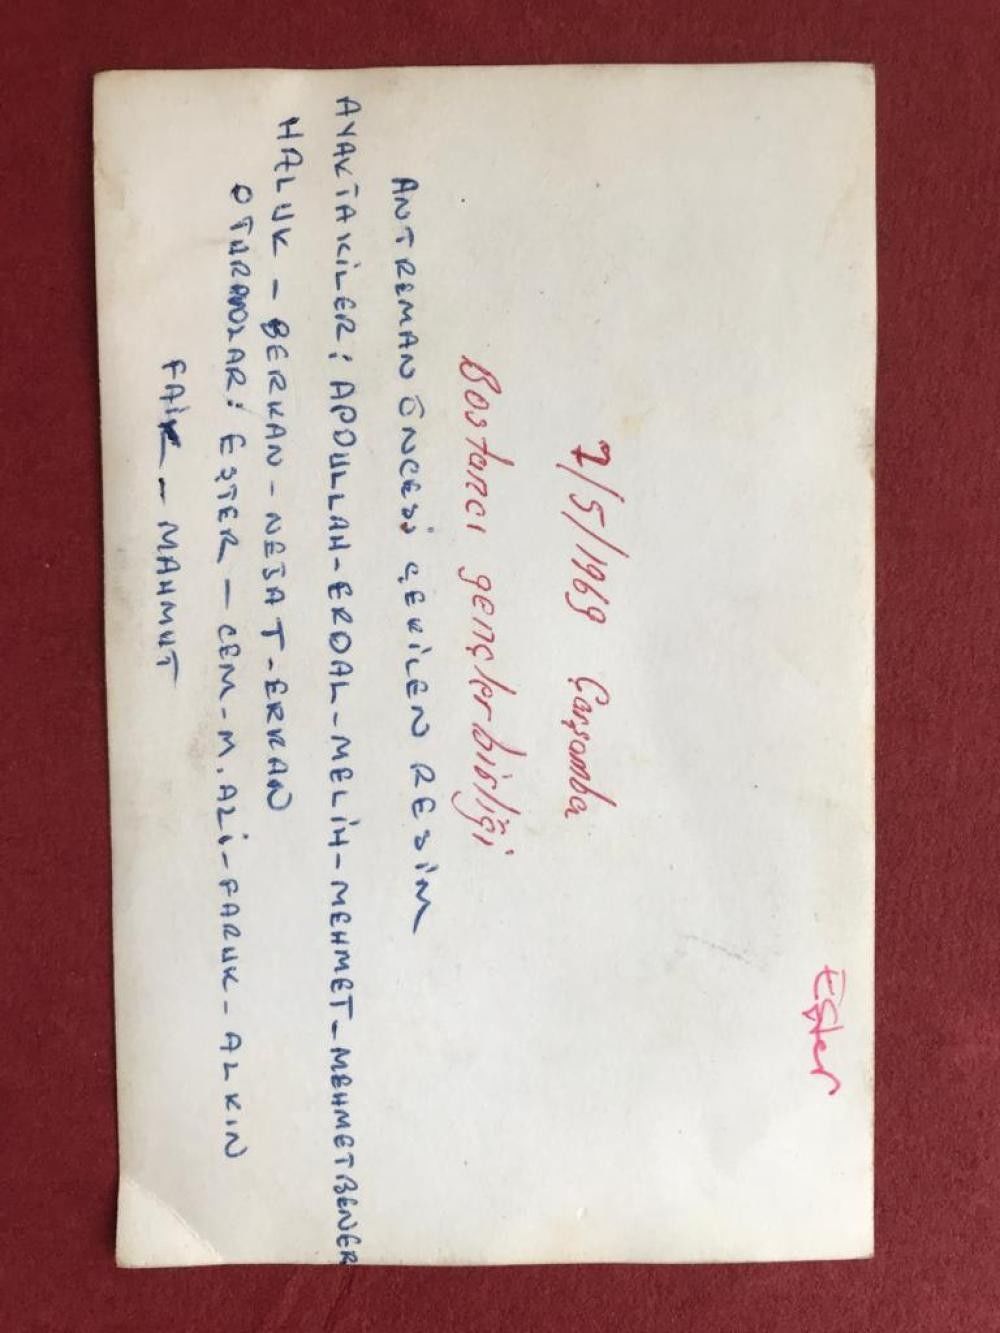 Eşter
7/5/1969 Çarşamba
Bostancı gençlerbirliği
ANTREMAN ÖNCESİ ÇEKİLEN RESİM
AYAKTAKİLER: APDULLAH-ERDAL-MELİH-MEHMET-MEHMETBENER
HALUK-BERKAN-NEJAT-ERKAN
OTARANLAR: EŞTER-CEM-M.ALİ-FARUK-ALKIN
FAİK-MAHMUT